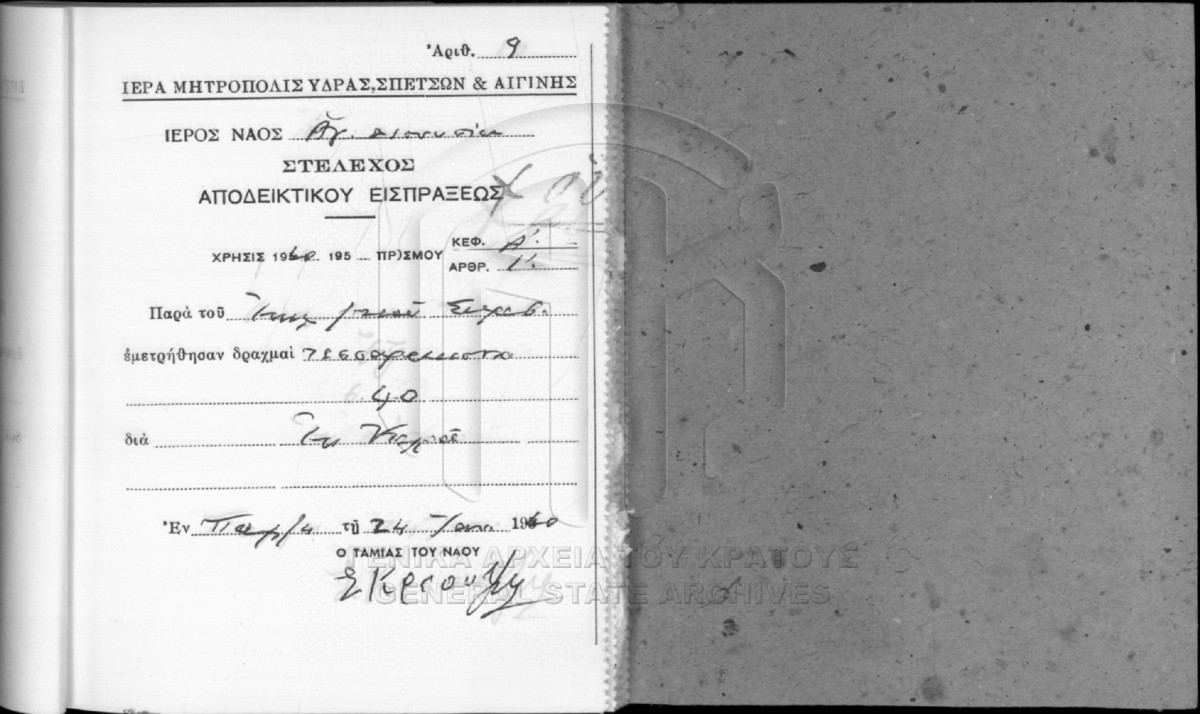 Ἀριθ. 9
ΙΕΡΑ ΜΗΤΡΟΠΟΛΙΣ ΥΔΡΑΣ, ΣΠΕΤΣΩΝ & ΑΙΓΙΝΗΣ
ΙΕΡΟΣ ΝΑΟΣ Ἁγ. Διονυσίου
ΣΤΕΛΕΧΟΣ
ΑΠΟΔΕΙΚΤΙΚΟΥ ΕΙΣΠΡΑΞΕΩΣ
ΧΡΗΣΙΣ 1960 195 ΠΡ)ΣΜΟΥ ΚΕΦ. Α΄.
ΑΡΘΡ. 1.
Παρὰ τοῦ
ἐμετρήθησαν δραχμαὶ τεσσαράκοντα
40
διὰ
Ἐν τῇ 24 1960
Ο ΤΑΜΙΑΣ ΤΟΥ ΝΑΟΥ
ΓΕΝΙΚΑ ΑΡΧΕΙΑ ΤΟΥ ΚΡΑΤΟΥΣ
GENERAL STATE ARCHIVES